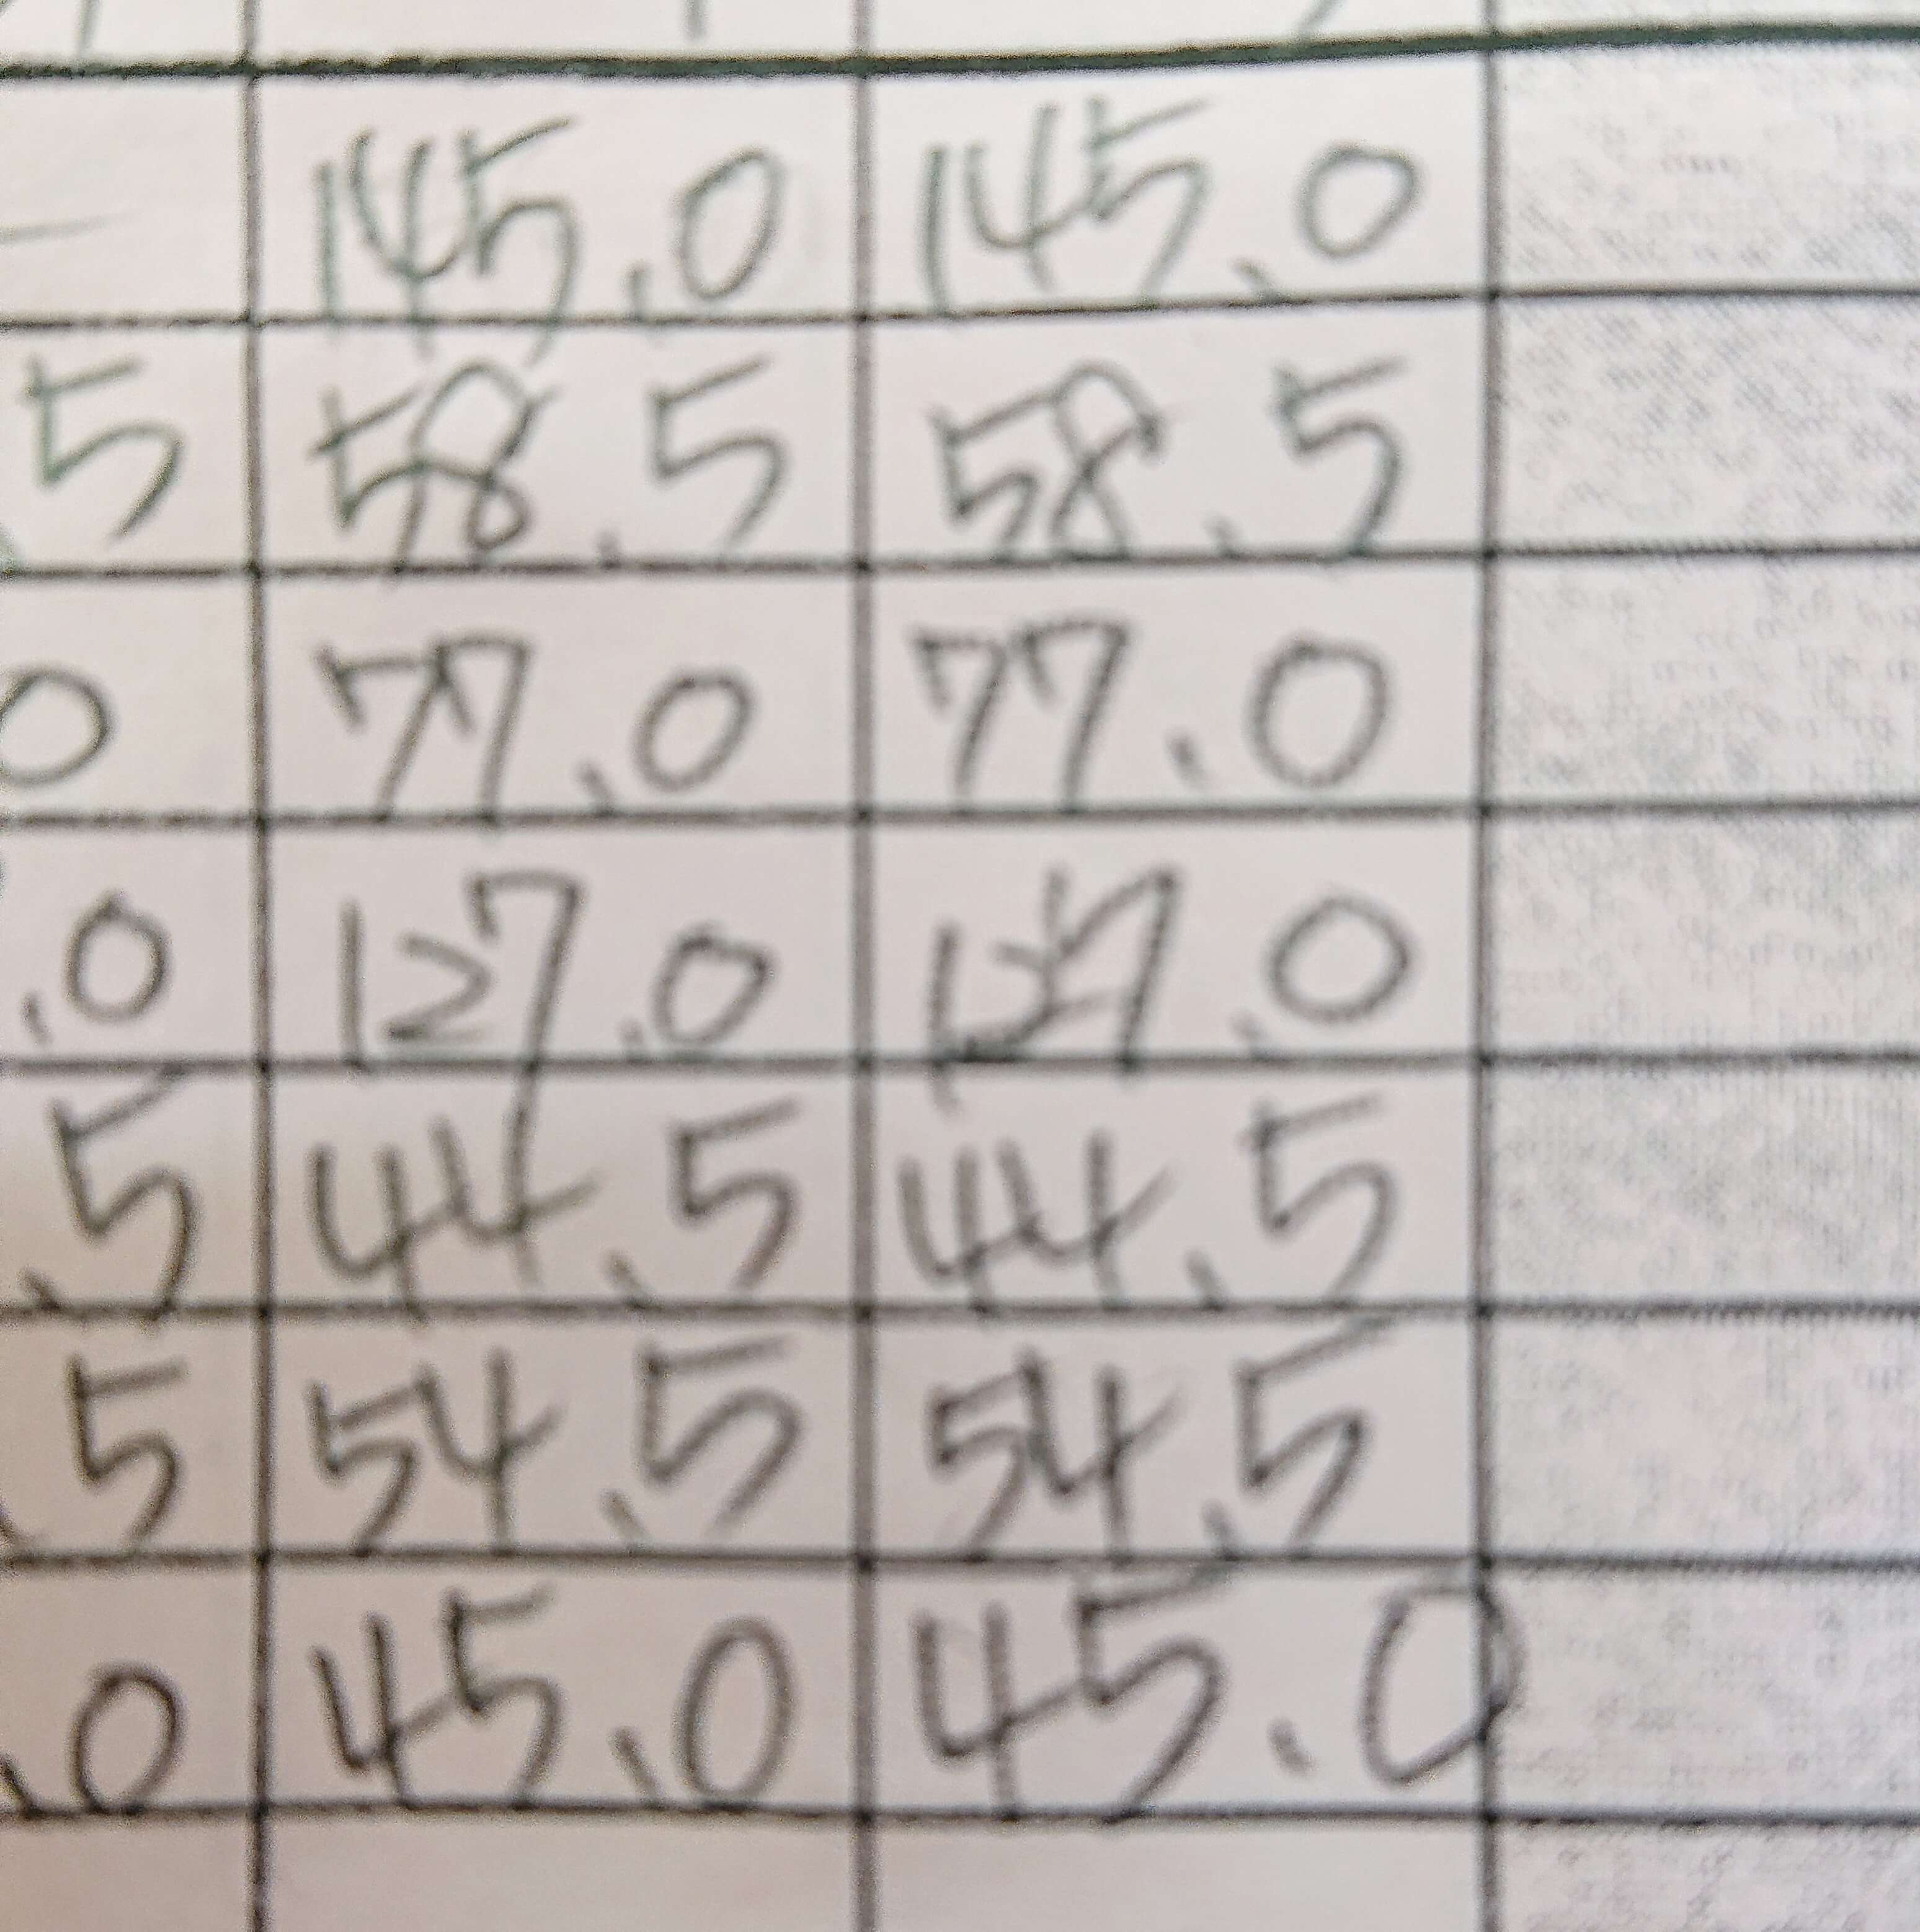 145.0 145.0
5 58.5 58.5
0 77.0 77.0
.0 127.0 .0
5 44.5 44.5
5 54.5 54.5
.0 45.0 45.0